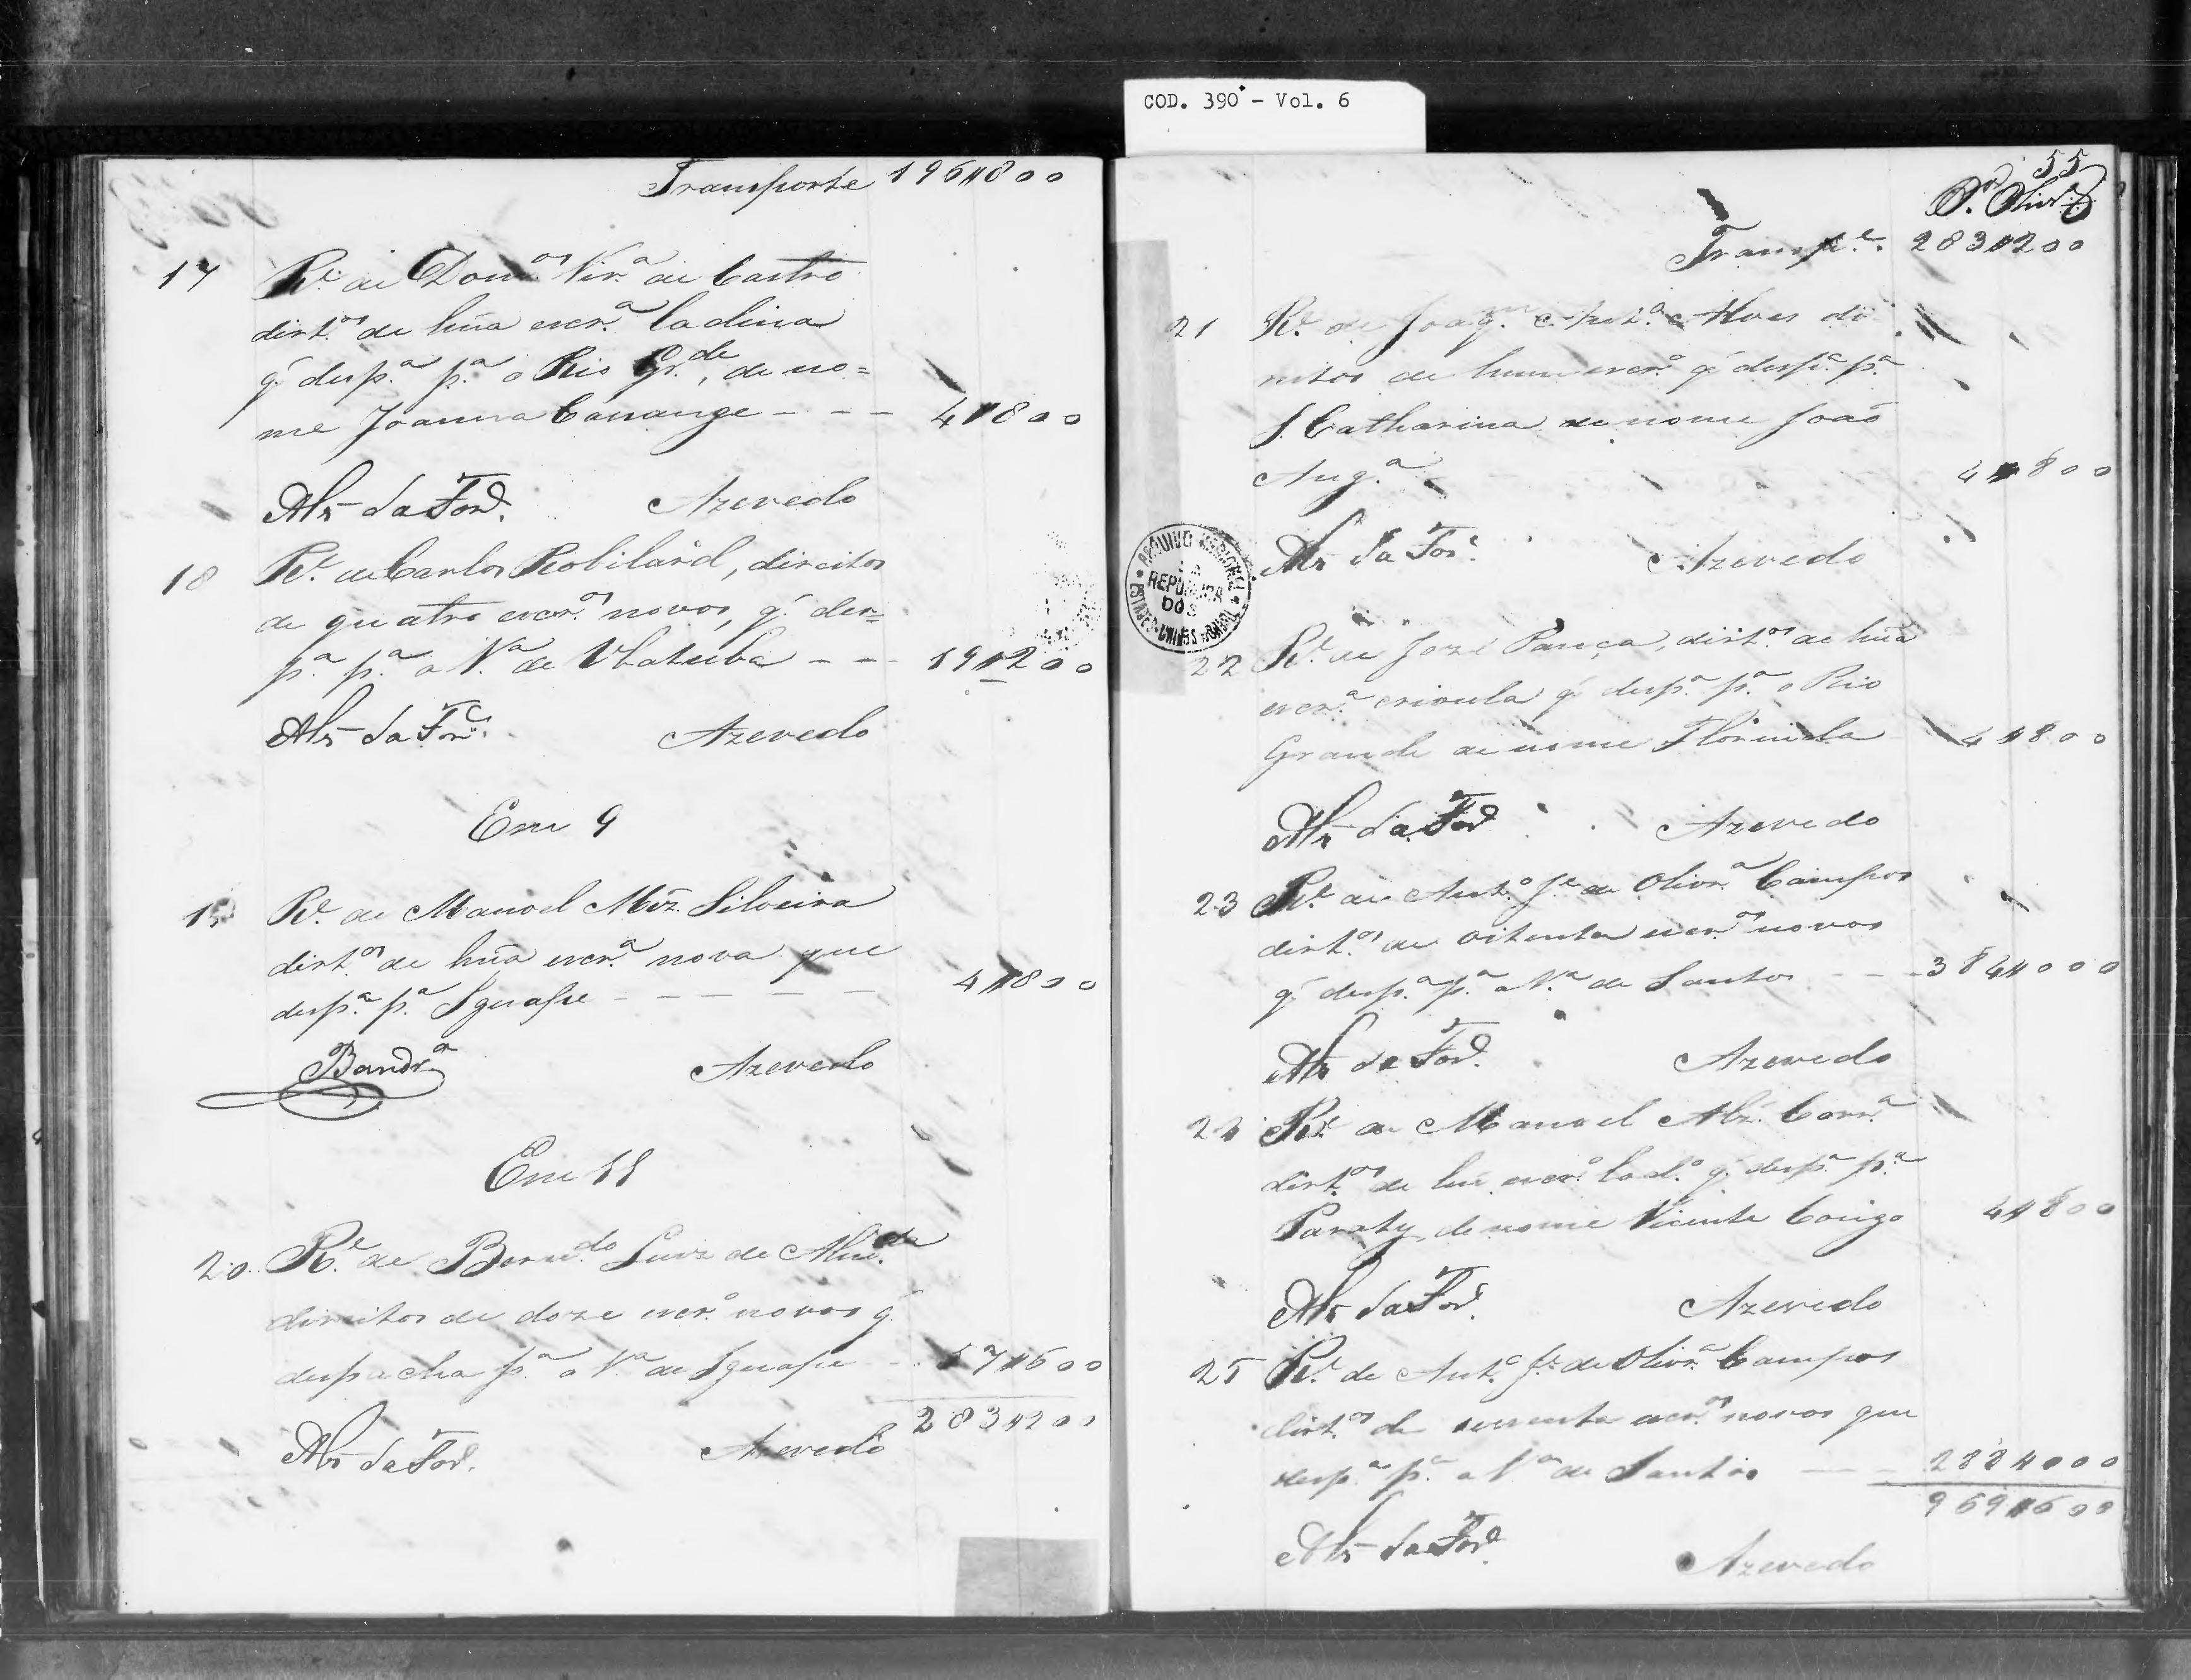 COD. 390 - Vol. 6
Transporte 196$800
17 R.e de Dom.os Vir.a de Castro
dirt.os de hũa escr.a ladina
q' desp.a p.a o Rio Gr.de, de no=
me Joanna Cassange - - - 4$800
Alz da Fon.ca Azevedo
18 R.e de Carlos Robilard, direitos
de quatro escr.os novos, q' des=
p.a p.a a V.a de Ubatuba - - - 19$200
Alz da Fon.ca Azevedo
Em 9
19 R.e de Manoel Miz Silveira
dirt.os de hũa escr.a nova que
desp.a p.a Iguape - - - - - 4$800
Bandr.a Azevedo
Em 11
20 R.e de Bern.do Luiz de Alm.da
direitos de doze escr.o novos q'
despacha p.a a V.a de Iguape - 57$600
283$200
Alz da Fon.ca Azevedo
55
Transp.e 283$200
21 R.e de Joaq.m Ant.o Alves di
reitos de hum escr.o q' desp.a p.a
S. Catharina de nome João
Ang.a 4$800
Alz da Fon.ca Azevedo
ARQUIVO NACIONAL
REPUBLICA
DOS
22 R.e de José Pança, dirt.os de hũa
escr.a crioula q' desp.a p.a o Rio
Grande de nome Florinda 4$800
Alz da Fon.ca Azevedo
23 R.e de Ant.o J.e de Olivr.a Campos
dirt.os de oitenta escr.os novos
q' desp.a p.a a V.a de Santos - - 384$000
Alz da Fon.ca Azevedo
24 R.e de Manoel Alz. Corr.a
dirt.os de hũ escr.o lad.o q' desp.a p.a
Paraty, de nome Vicente Congo 4$800
Alz da Fon.ca Azevedo
25 R.e de Ant.o J.e de Olivr.a Campos
dirt.os de secenta escr.os novos que
desp.a p.a a V.a de Santos - - 288$000
969$600
Alz da Fon.ca Azevedo